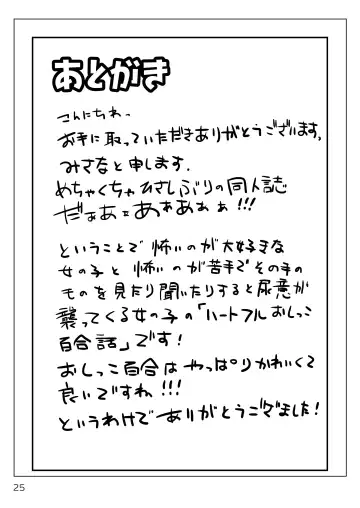 あとがき
こんにちわ〜
お手に取っていただきありがとうございます。
みさなと申します。
めちゃくちゃひさしぶりの同人誌
だぁあ〜あぁあぁぁ!!!
ということで怖いのが大好きな
女の子と怖いのが苦手でその手の
ものを見たり聞いたりすると尿意が
襲ってくる女の子の「ハートフルおしっこ
百合話」です!
おしっこ百合はやっぱりかわいくて
良いですね!!!
というわけでありがとうございました!
25